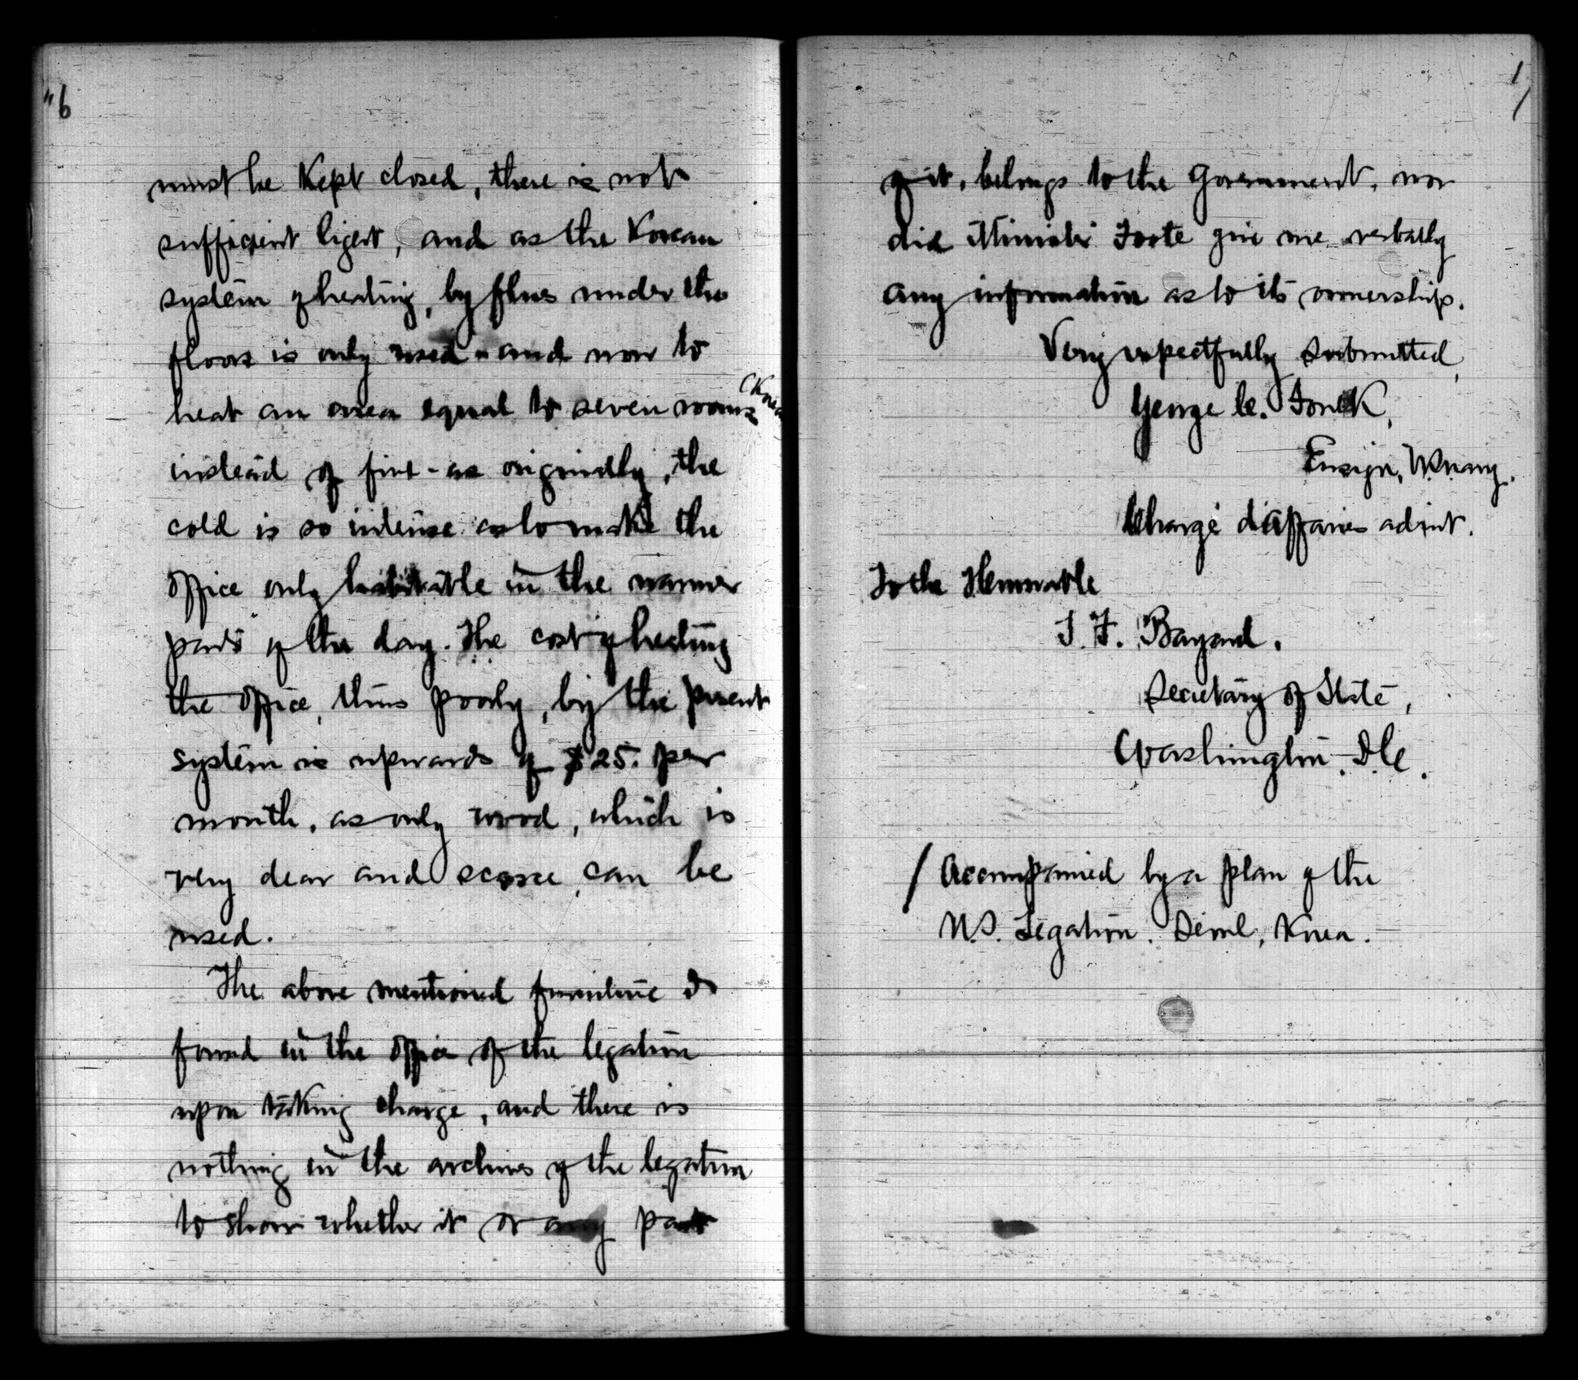 "6
must be Kept closed, there is not
sufficient light, and as the Korean
system of heating, by flues under the
floors is only used - and now to
heat an area equal to seven rooms (Korean
instead of five - as originally, the
cold is so intense as to make the
office only habitable in the warmer
parts of the day. The cost of heating
the office, thus poorly, by the present
system is upwards of $25. per
month, as only wood, which is
very dear and scarce, can be
used.
The above mentioned furniture I
found in the office of the legation
upon taking charge, and there is
nothing in the archives of the legation
to show whether it or any part
17
of it, belongs to the Government, nor
did Minister Foote give me verbally
any information as to its ownership.
Very respectfully submitted,
George C. Foulk,
Ensign, U.S. Navy.
Chargé d'affaires ad int.
To the Honorable
T. F. Bayard.
Secretary of State,
Washington. D.C.
/ Accompanied by a plan of the
U.S. Legation. Seoul, Korea.